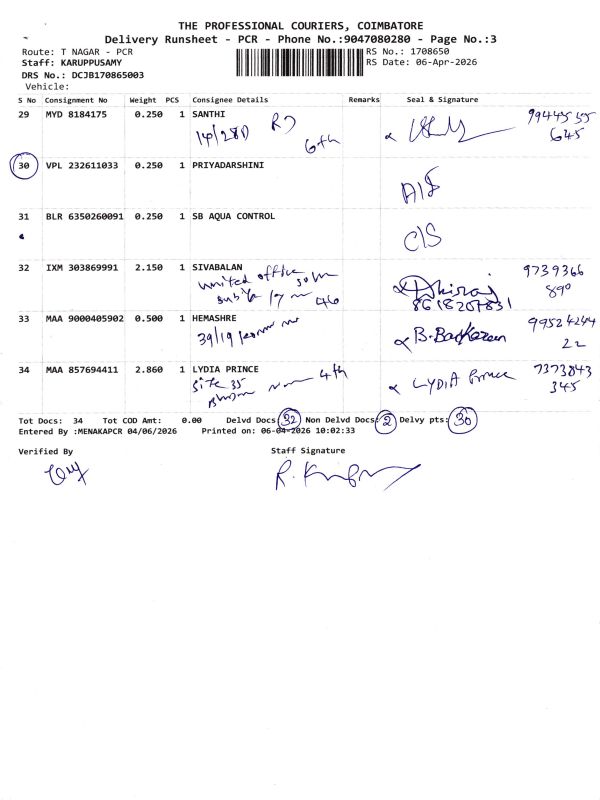 THE PROFESSIONAL COURIERS, COIMBATORE
Delivery Runsheet - PCR - Phone No.:9047080280 - Page No.:3
Route: T NAGAR - PCR
RS No.: 1708650
Staff: KARUPPUSAMY
RS Date: 06-Apr-2026
DRS No.: DCJB170865003
Vehicle:
S No Consignment No Weight PCS Consignee Details Remarks Seal & Signature
29 MYD 8184175 0.250 1 SANTHI 9944555
6th 645
30 VPL 232611033 0.250 1 PRIYADARSHINI
A/S
31 BLR 6350260091 0.250 1 SB AQUA CONTROL
C/S
32 IXM 303869991 2.150 1 SIVABALAN 9739366
united office Dhiraj 890
46 8618207831
33 MAA 9000405902 0.500 1 HEMASHRE 99524244
39/19 B. Baskaran 22
34 MAA 857694411 2.860 1 LYDIA PRINCE 7373843
Site 35 4th LYDIA Prince 345
Tot Docs: 34 Tot COD Amt: 0.00 Delvd Docs: 32 Non Delvd Docs: 2 Delvy pts: 30
Entered By :MENAKAPCR 04/06/2026 Printed on: 06-04-2026 10:02:33
Verified By Staff Signature